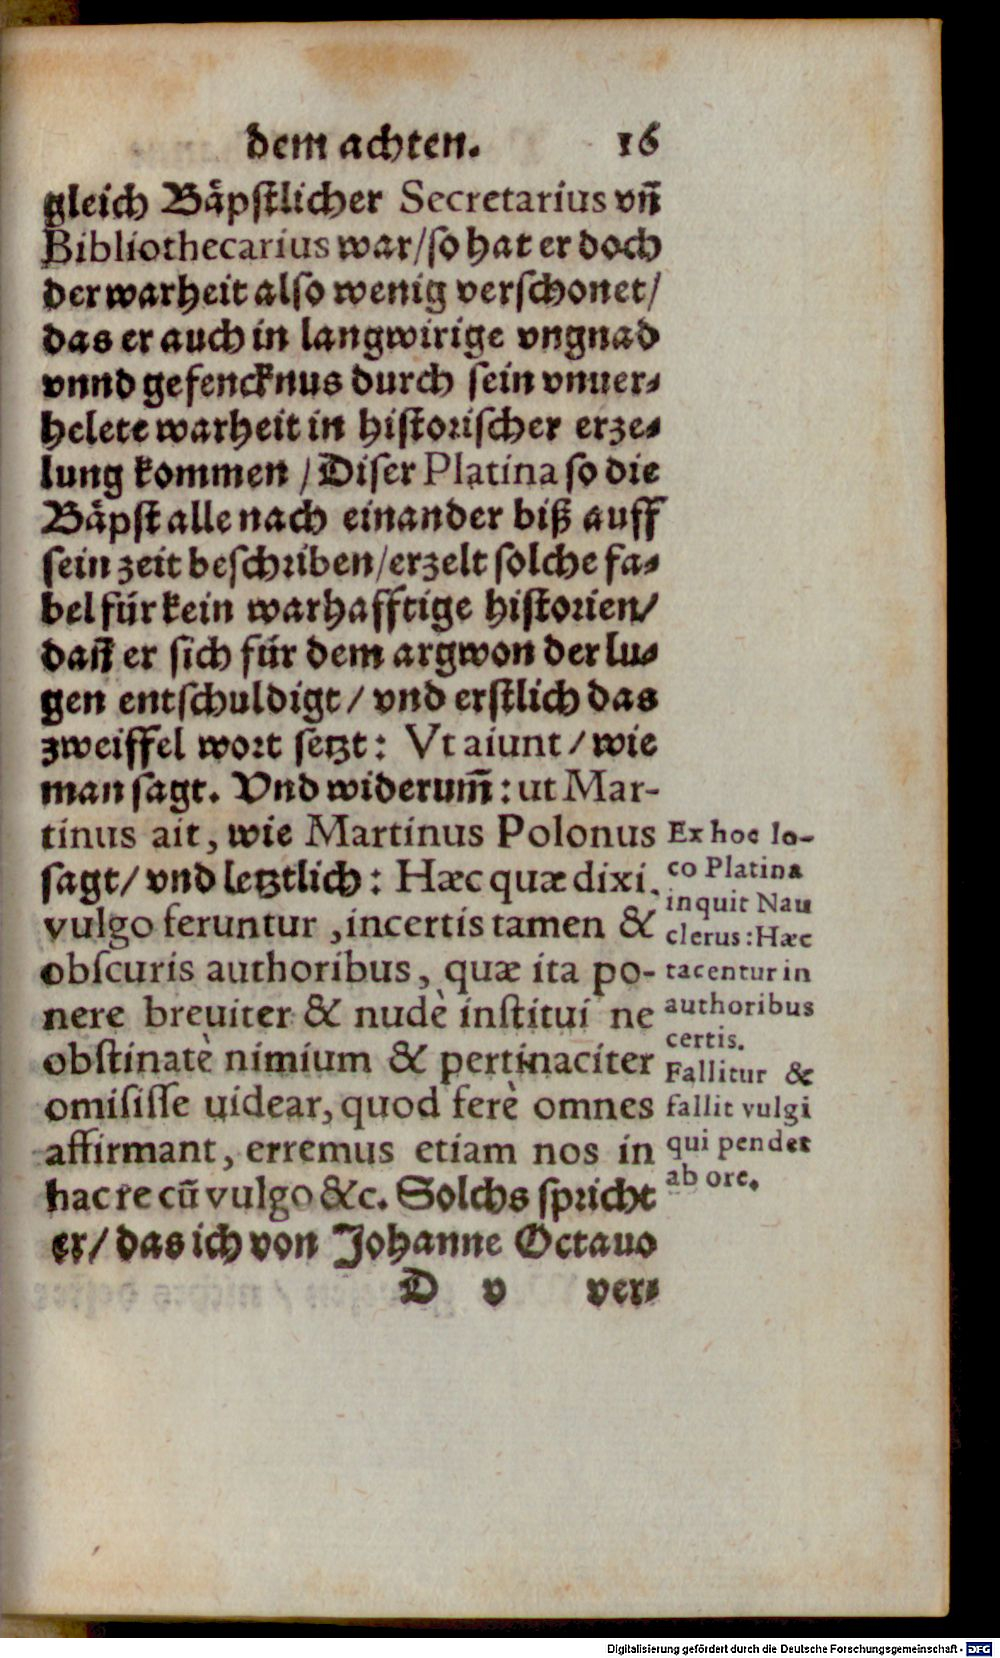 dem achten. 16
gleich Bäpstlicher Secretarius vñ
Bibliothecarius war/so hat er doch
der warheit also wenig verschonet/
das er auch in langwirige vngnad
vnnd gefencknus durch sein vnuer-
helete warheit in historischer erze-
lung kommen / Diser Platina so die
Bäpst alle nach einander biß auff
sein zeit beschriben/erzelt solche fa-
bel für kein warhafftige historien/
dañ er sich für dem argwon der lu-
gen entschuldigt / vnd erstlich das
zweiffel wort setzt: Vt aiunt / wie
man sagt. Vnd widerum̃: ut Mar-
tinus ait, wie Martinus Polonus
sagt/ vnd letztlich: Hæc quæ dixi,
vulgo feruntur ,incertis tamen &
obscuris authoribus, quæ ita po-
nere breuiter & nudè institui ne
obstinatè nimium & pertinaciter
omisisse uidear, quod ferè omnes
affirmant, erremus etiam nos in
hac re cū vulgo &c. Solchs spricht
er/ das ich von Johanne Octauo
D v ver-
Ex hoc lo-
co Platina
inquit Nau
clerus: Hæc
tacentur in
authoribus
certis.
Fallitur &
fallit vulgi
qui pendet
ab ore.
Digitalisierung gefördert durch die Deutsche Forschungsgemeinschaft - DFG